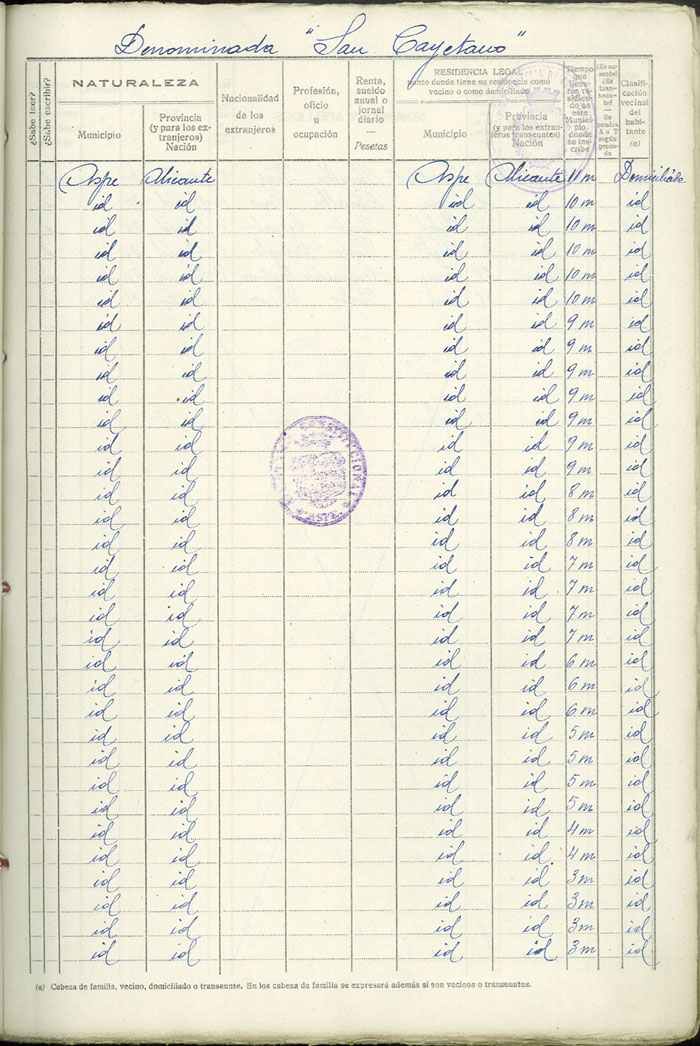 Denominada "San Cayetano"
¿Sabe leer?
¿Sabe escribir?
NATURALEZA
Municipio
Provincia
(y para los ex-
tranjeros)
Nación
Nacionalidad
de los
extranjeros
Profesión,
oficio
u
ocupación
Renta,
sueldo
anual o
jornal
diario
—
Pesetas
RESIDENCIA LEGAL
punto donde tiene su residencia como
vecino o como domiciliado
Municipio
Provincia
(y para los extran-
jeros transeuntes)
Nación
Tiempo
que
lleva
re-
sidien-
do en
este
Munici-
pio
donde
se ins-
cribe
Clasifi-
cación
vecinal
del
habi-
tante
(a)
Aspe Alicante Aspe Alicante 11 m Domiciliado
id id id id 10 m id
id id id id 10 m id
id id id id 10 m id
id id id id 10 m id
id id id id 10 m id
id id id id 9 m id
id id id id 9 m id
id id id id 9 m id
id id id id 9 m id
id id id id 9 m id
id id id id 9 m id
id id id id 9 m id
id id id id 8 m id
id id id id 8 m id
id id id id 8 m id
id id id id 7 m id
id id id id 7 m id
id id id id 7 m id
id id id id 7 m id
id id id id 6 m id
id id id id 6 m id
id id id id 6 m id
id id id id 5 m id
id id id id 5 m id
id id id id 5 m id
id id id id 5 m id
id id id id 4 m id
id id id id 4 m id
id id id id 3 m id
id id id id 3 m id
id id id id 3 m id
id id id id 3 m id
CONSTITUCIONAL
ASPE
(a) Cabeza de familia, vecino, domiciliado o transeunte. En los cabeza de familia se expresará además si son vecinos o transeuntes.